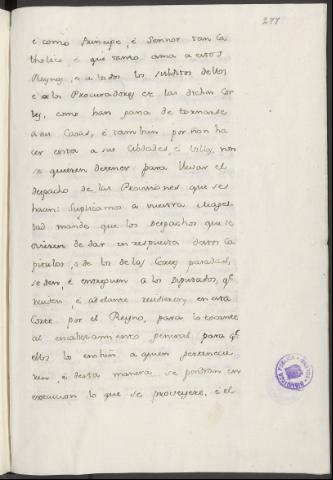 277
é como Principe, é Sennor tan Ca
tholico é que tanto ama a estos
Reynos, é a todos los subditos dellos
é a los Procuradores de las dichas Cor
tes, como han gana de tornarse
a sus Casas, é tambien por non ha
cer costa a sus Cibdades, é Villas, non
se quieren detener para llevar el
despacho de las Provisiones que se
haran: Suplicamos a vuestra Mages
tad mande que los despachos que se
ovieren de dar en respuesta destos Ca
pitulos, é de los de las Cortes pasadas,
se den, é entreguen a los Diputados, q̃
residen, é adelante residieren en esta
Corte por el Reyno, para lo tocante
al encabezamiento general para q̃
ellos lo embien a quien pertenecie
ren, é desta manera se pondran en
execucion lo que se proveyere, é el
BIBLIOTECA PUBLICA